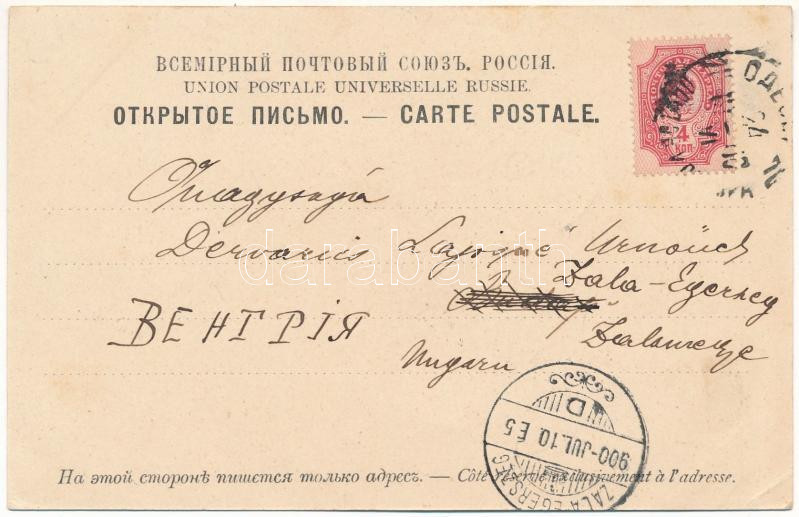 ВСЕМІРНЫЙ ПОЧТОВЫЙ СОЮЗЪ. РОССІЯ.
UNION POSTALE UNIVERSELLE RUSSIE.
ОТКРЫТОЕ ПИСЬМО. — CARTE POSTALE.
4
КОП
ОДЕССА
Dervarics Lajosné Urnőnek
Zala-Egerszeg
ВЕНГРІЯ
Zalamegye
Ungarn
darabanth
D
900-JUL.10. E5
ZALA EGERSZEG
На этой сторонѣ пишется только адресъ. — Côté réservé exclusivement à l'adresse.